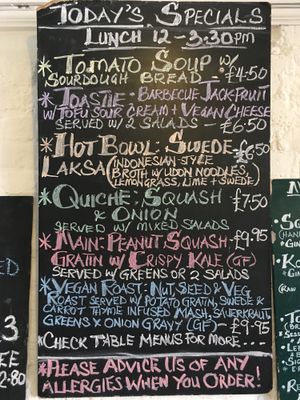 Today's Specials
Lunch 12-3.30pm
* Tomato Soup w/
Sourdough Bread - £4.50
* Toastie - Barbecue Jackfruit
w/ Tofu Sour Cream + Vegan Cheese
Served w/ 2 Salads - £6.50
* Hot Bowl: Swede £6.50
Laksa (Indonesian-Style
Broth w/ Udon Noodles,
Lemongrass, Lime + Swede)
* Quiche: Squash £7.50
& Onion
Served w/ Mixed Salads
* Main: Peanut Squash £9.95
Gratin w/ Crispy Kale (GF)
Served w/ Greens or 2 Salads
* Vegan Roast: Nut, Seed & Veg
Roast Served w/ Potato Gratin, Swede &
Carrot Thyme Infused Mash, Sauerkraut,
Greens & Onion Gravy (GF) - £9.95
* Check Table Menus for More....
* Please Advice Us of Any
Allergies When You Order!